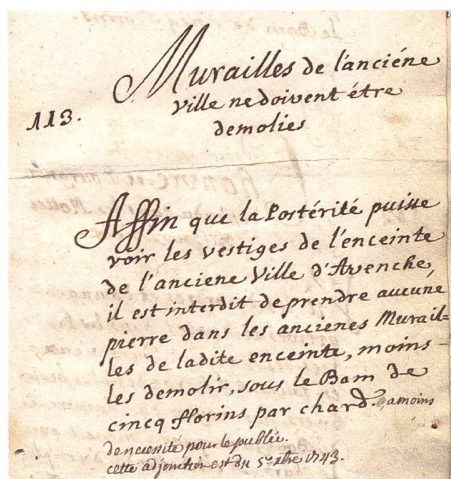 Murailles de l'anciéne
ville ne doivent étre
113.
demolies
Affin que la Postérité puisse
voir les vestiges de l'enceinte
de l'anciene Ville d'Avenche,
il est interdit de prendre aucune
pierre dans les ancienes Murail=
les de ladite enceinte, moins
les demolir, sous le Bam de
cinq florins par chard. a moins
de necessité pour le publiq.
cette adjonction est du 5e 1743.